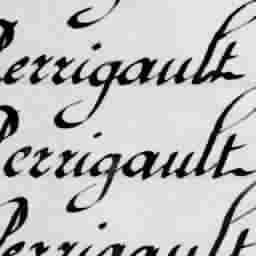 Perrigault
Perrigault
Perrigault